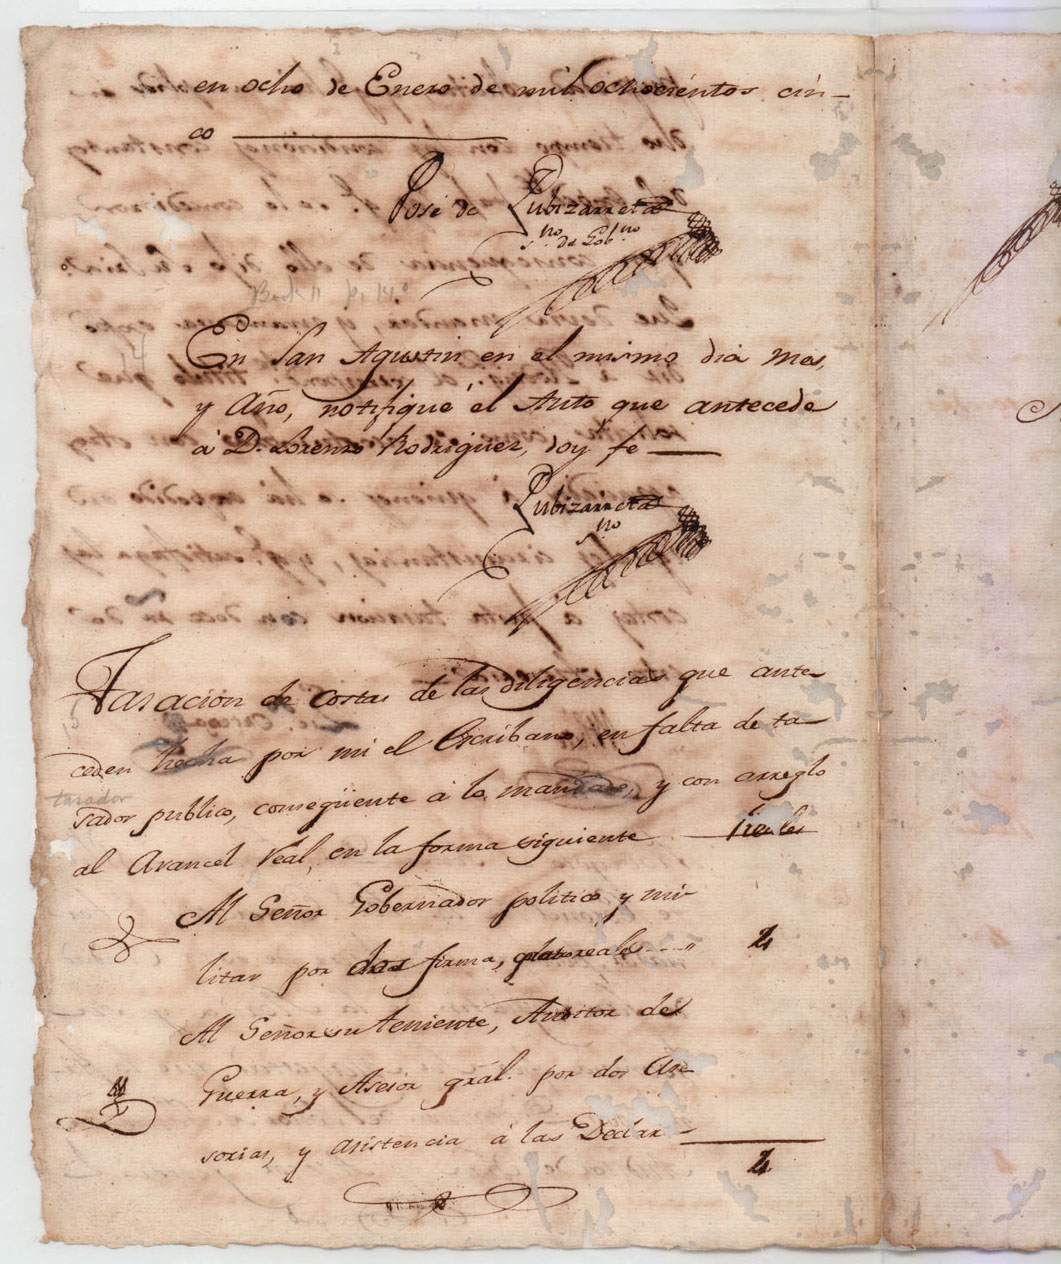 en ocho de Enero de mil ochocientos cin-
co
José de Zubizarreta
sno de Gobno
Book 11 p. 14
En San Agustin en el mismo dia mes,
y Año, notifiqué el Auto que antecede
á D. Lorenzo Rodriguez, doy fe
Zubizarreta
sno
Tasacion de costas de las diligencias que ante-
ceden hecha por mi el Escribano, en falta de ta-
tasador
sador publico, conseqüente á lo mandado, y con arreglo
al Arancel Real, en la forma siguiente Reales
Al Señor Gobernador politico y mi-
litar por dos firma, quatro reales 4
Al Señor su teniente, Auditor de
Guerra, y Asesor gral. por dos Ase-
sorias, y asistencia á las Declar
4